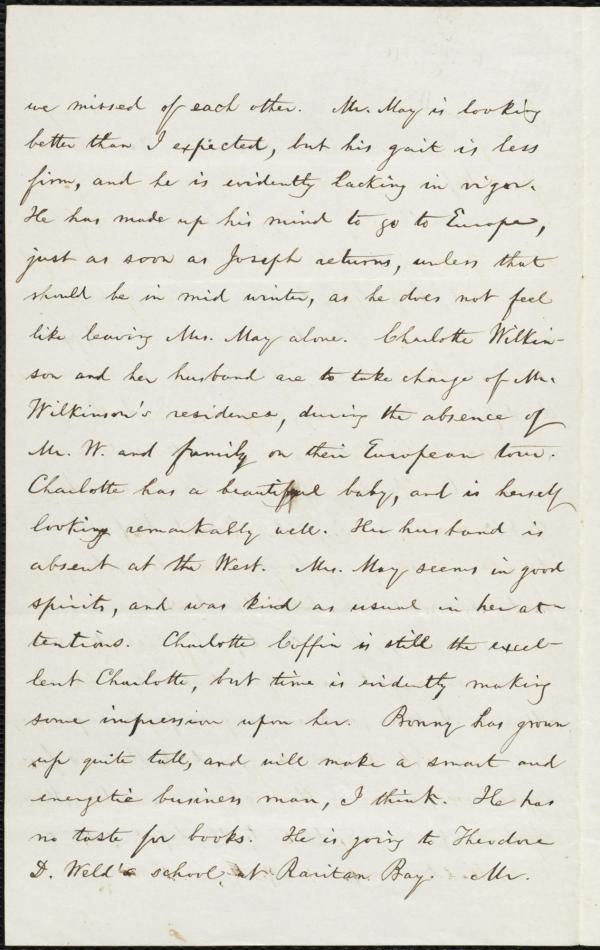 we missed of each other. Mr. May is looking
better than I expected, but his gait is less
firm, and he is evidently lacking in vigor.
He has made up his mind to go to Europe,
just as soon as Joseph returns, unless that
should be in mid winter, as he does not feel
like leaving Mrs. May alone. Charlotte Wilkin-
son and her husband are to take charge of Mr.
Wilkinson's residence, during the absence of
Mr. W. and family on their European tour.
Charlotte has a beautiful baby, and is herself
looking remarkably well. Her husband is
absent at the West. Mrs. May seems in good
spirits, and was kind as usual in her at-
tentions. Charlotte Coffin is still the excel-
lent Charlotte, but time is evidently making
some impression upon her. Bonny has grown
up quite tall, and will make a smart and
energetic business man, I think. He has
no taste for books. He is going to Theodore
D. Weld's school, at Raritan Bay. Mr.